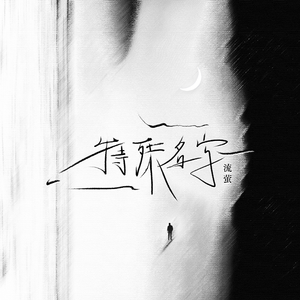 特殊名字
流萤